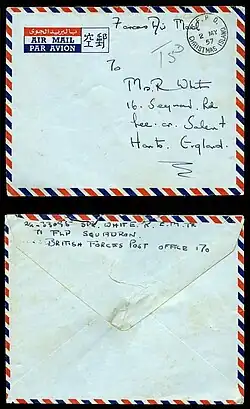 بالبريد الجوي
AIR MAIL
PAR AVION
空郵
Forces Air Mail
F.P.O.
2 MY
57
CHRISTMAS ISLAND
To
Mrs. R White
16. Seymour Rd
Lee on Solent
Hants, England.
SPR. WHITE. R.
SQUADRON
BRITISH FORCES POST OFFICE 170